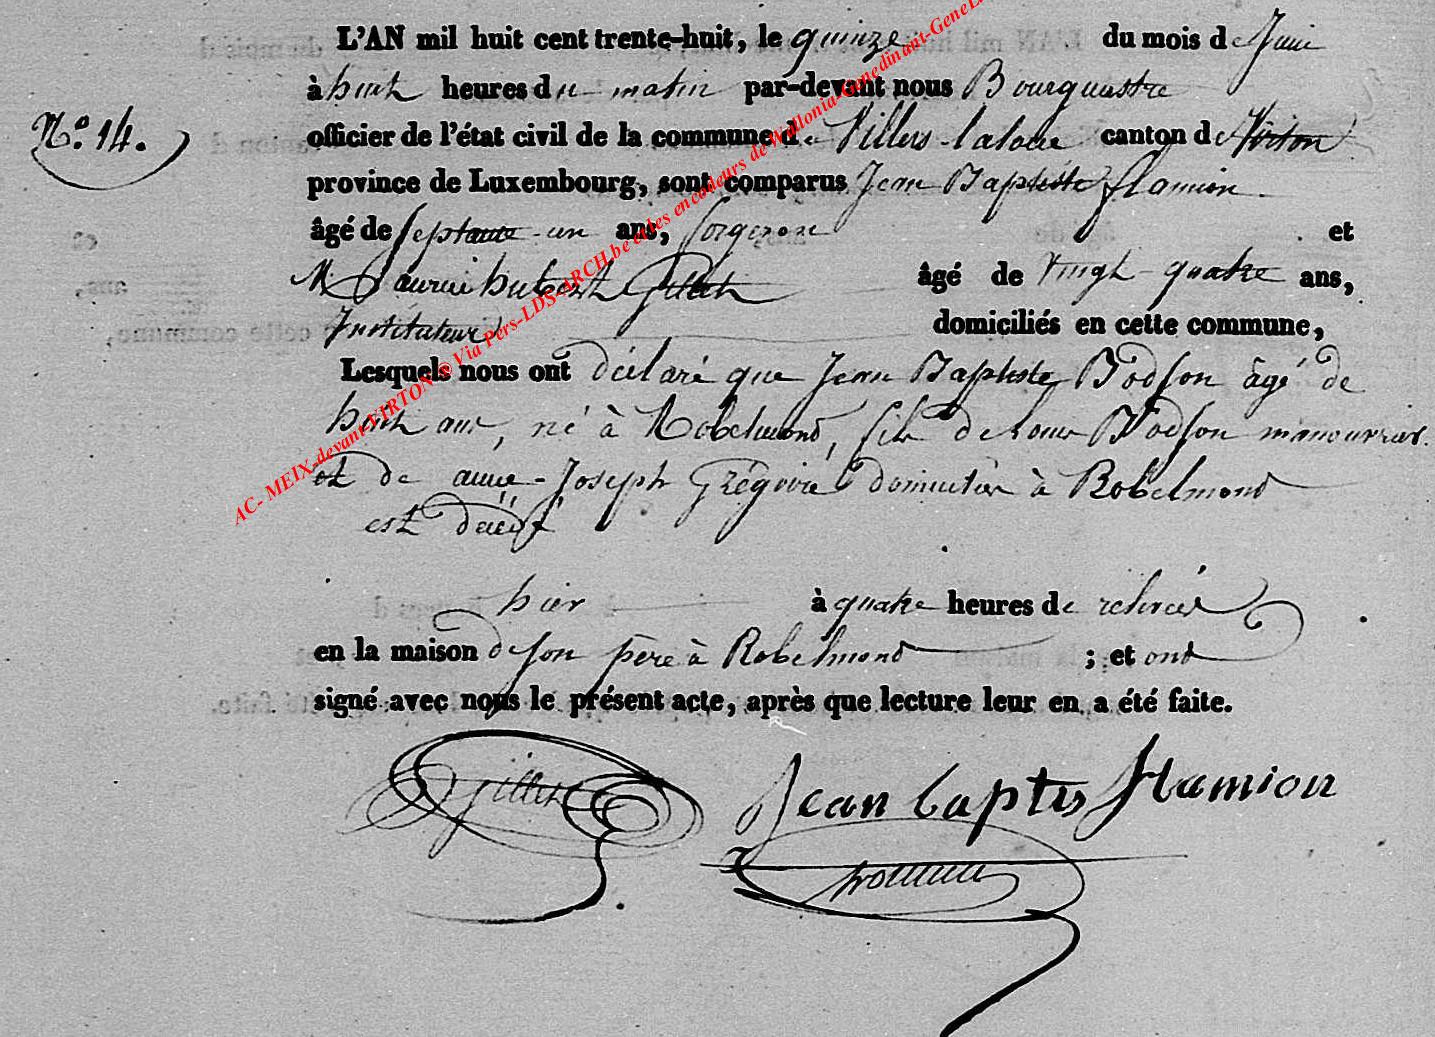 L'AN mil huit cent trente-huit, le quinze du mois de Juin
à huit heures du matin par-devant nous Bourguestre
N° 14.
officier de l'état civil de la commune de Villers-laloue canton de Virton
province de Luxembourg, sont comparus Jean Baptiste flamion
âgé de septante-un ans, forgeron et
hubert Gillet âgé de vingt-quatre ans,
Instituteur domiciliés en cette commune,
Lesquels nous ont déclaré que Jean Baptiste Bodson âgé de
huit ans, né à Robelmond, fils de Louis Bodson manouvrier
et de anne-Joseph Grégoire domiciliés à Robelmond
est décédé
hier à quatre heures de relevée
en la maison de son père à Robelmond ; et ont
signé avec nous le présent acte, après que lecture leur en a été faite.
Gillet Jean baptis flamion
AC- MEIX-devant-VIRTON © Via Pers-LDS-ARCH.be et les encodeurs de Wallonia-Genedinant-GeneL